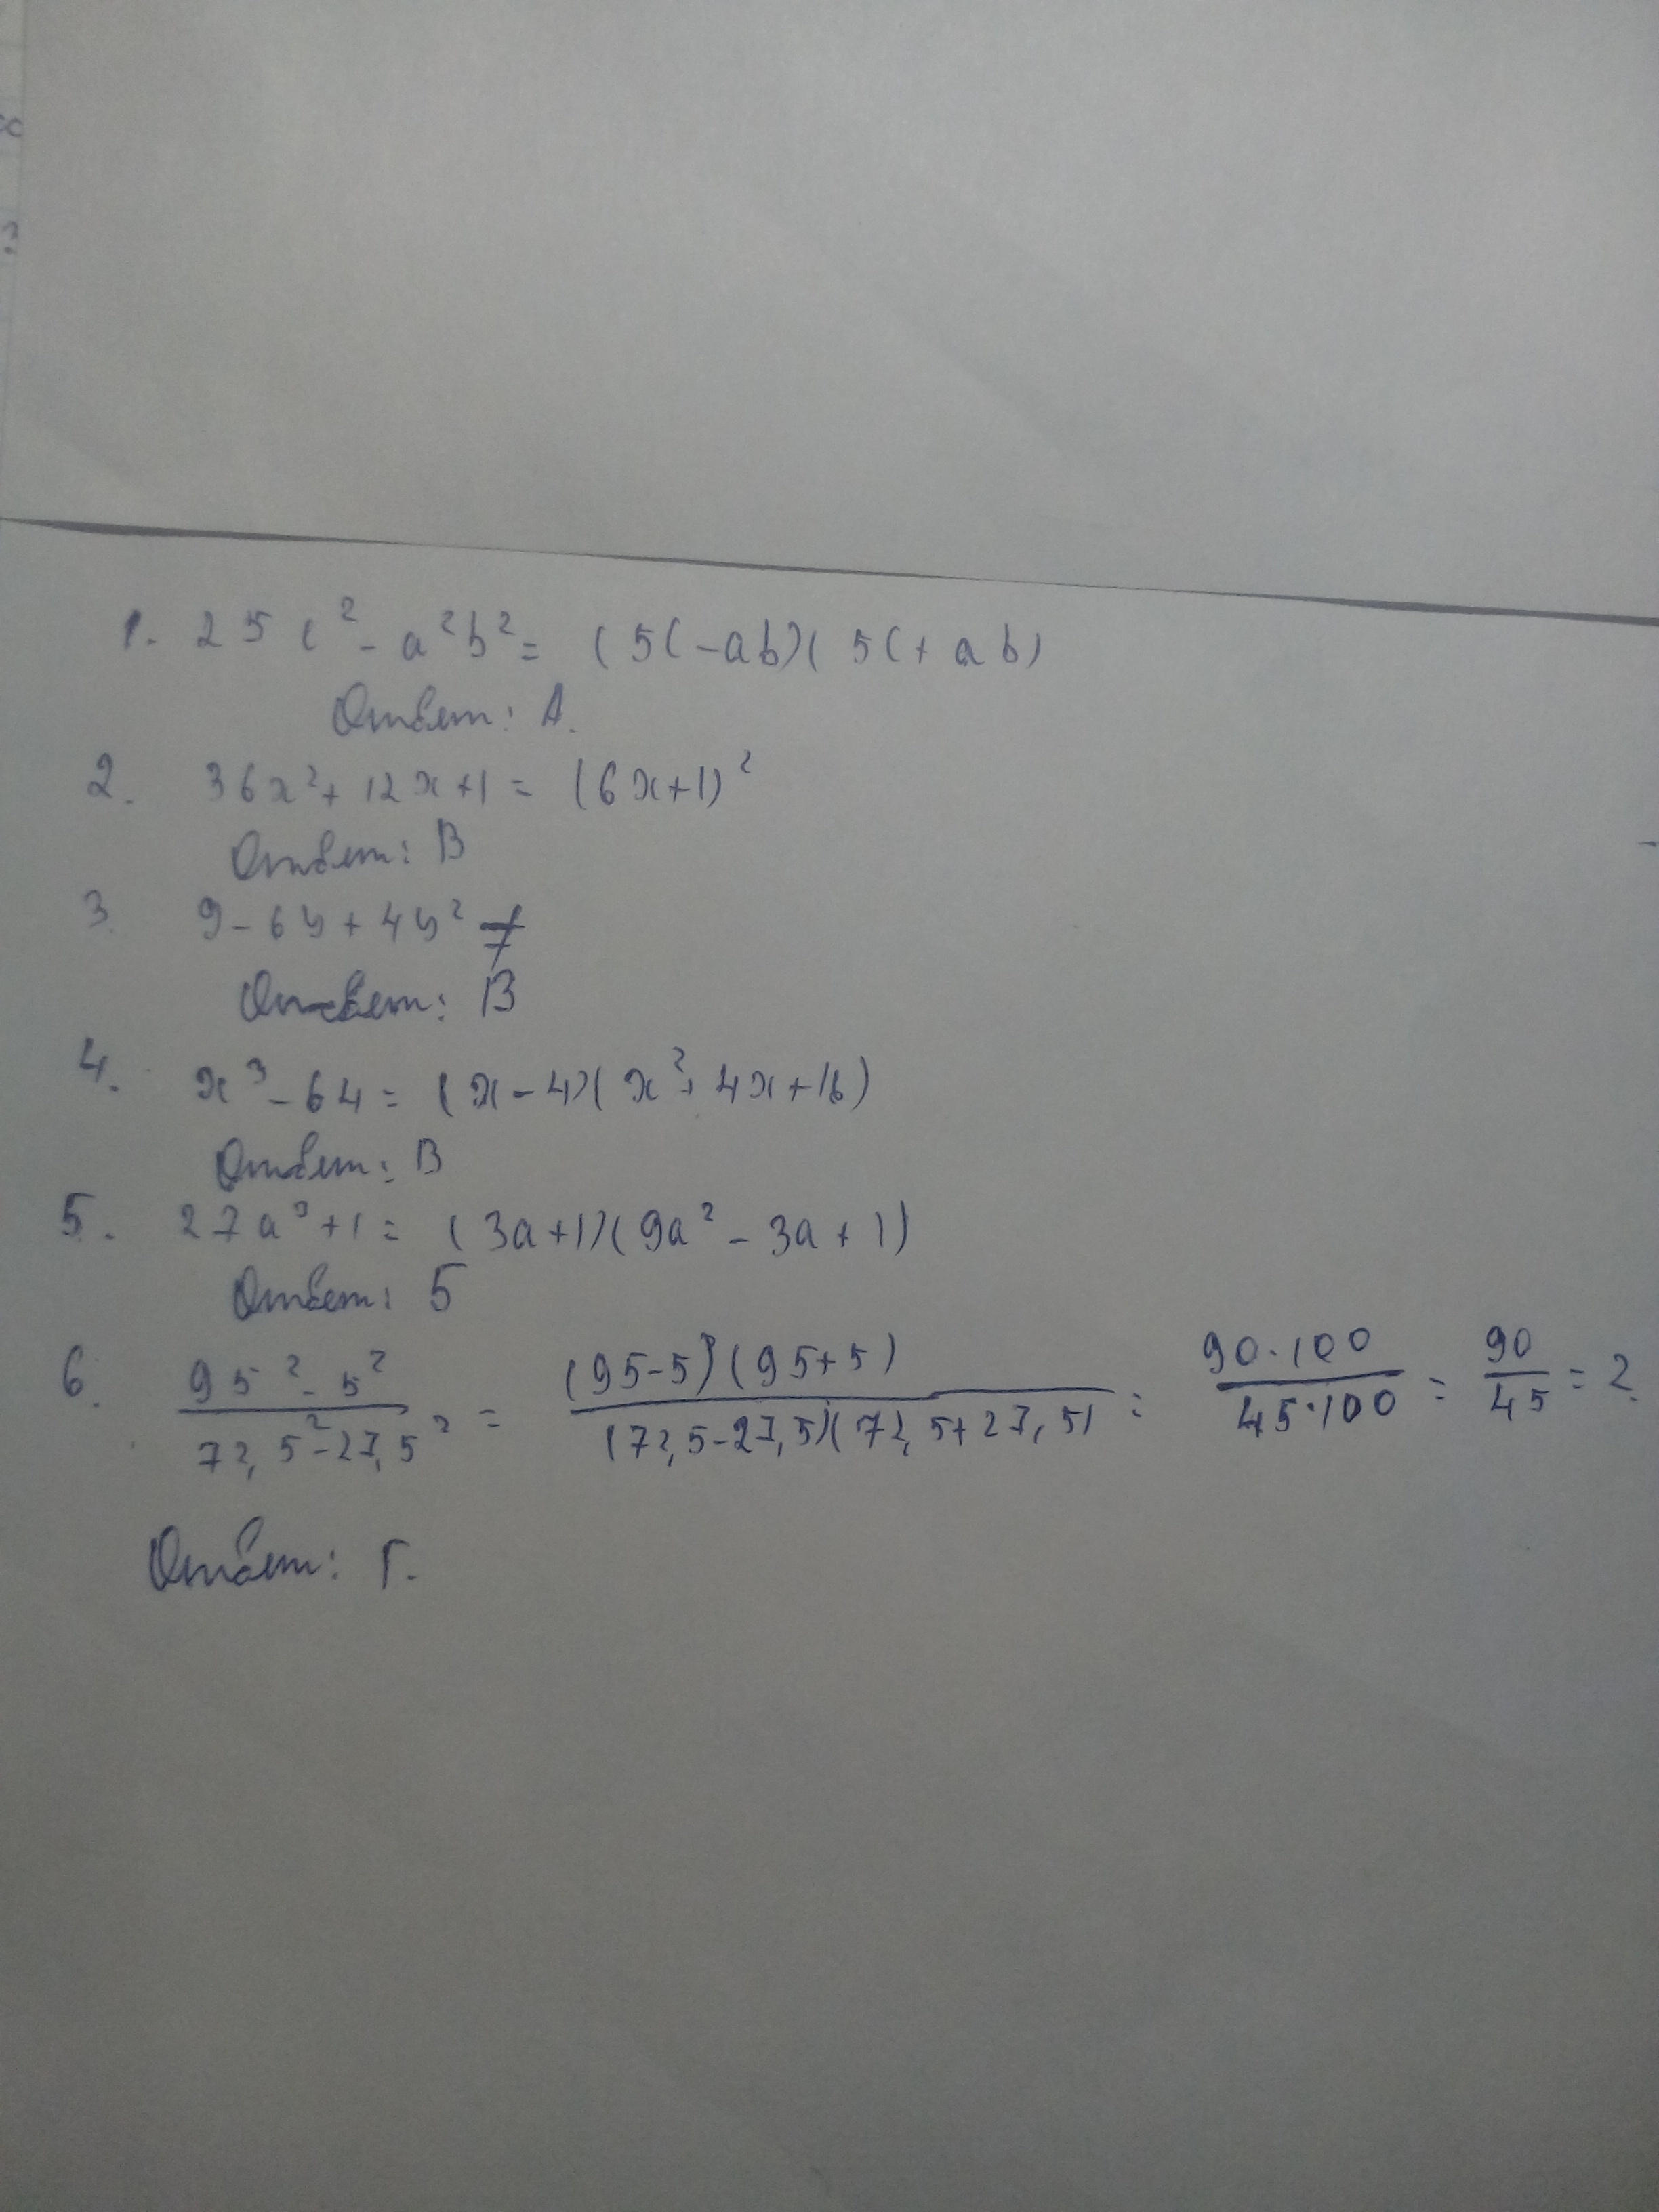 1. 25c² - a²b² = (5c - ab)(5c + ab)
Ответ: А.
2. 36x² + 12x + 1 = (6x + 1)²
Ответ: В
3. 9 - 6y + 4y² ≠
Ответ: В
4. x³ - 64 = (x - 4)(x² + 4x + 16)
Ответ: В
5. 27a³ + 1 = (3a + 1)(9a² - 3a + 1)
Ответ: Б
6. (95² - 5²)/(72,5² - 27,5²) = ((95 - 5)(95 + 5))/((72,5 - 27,5)(72,5 + 27,5)) = (90·100)/(45·100) = 90/45 = 2.
Ответ: Г.